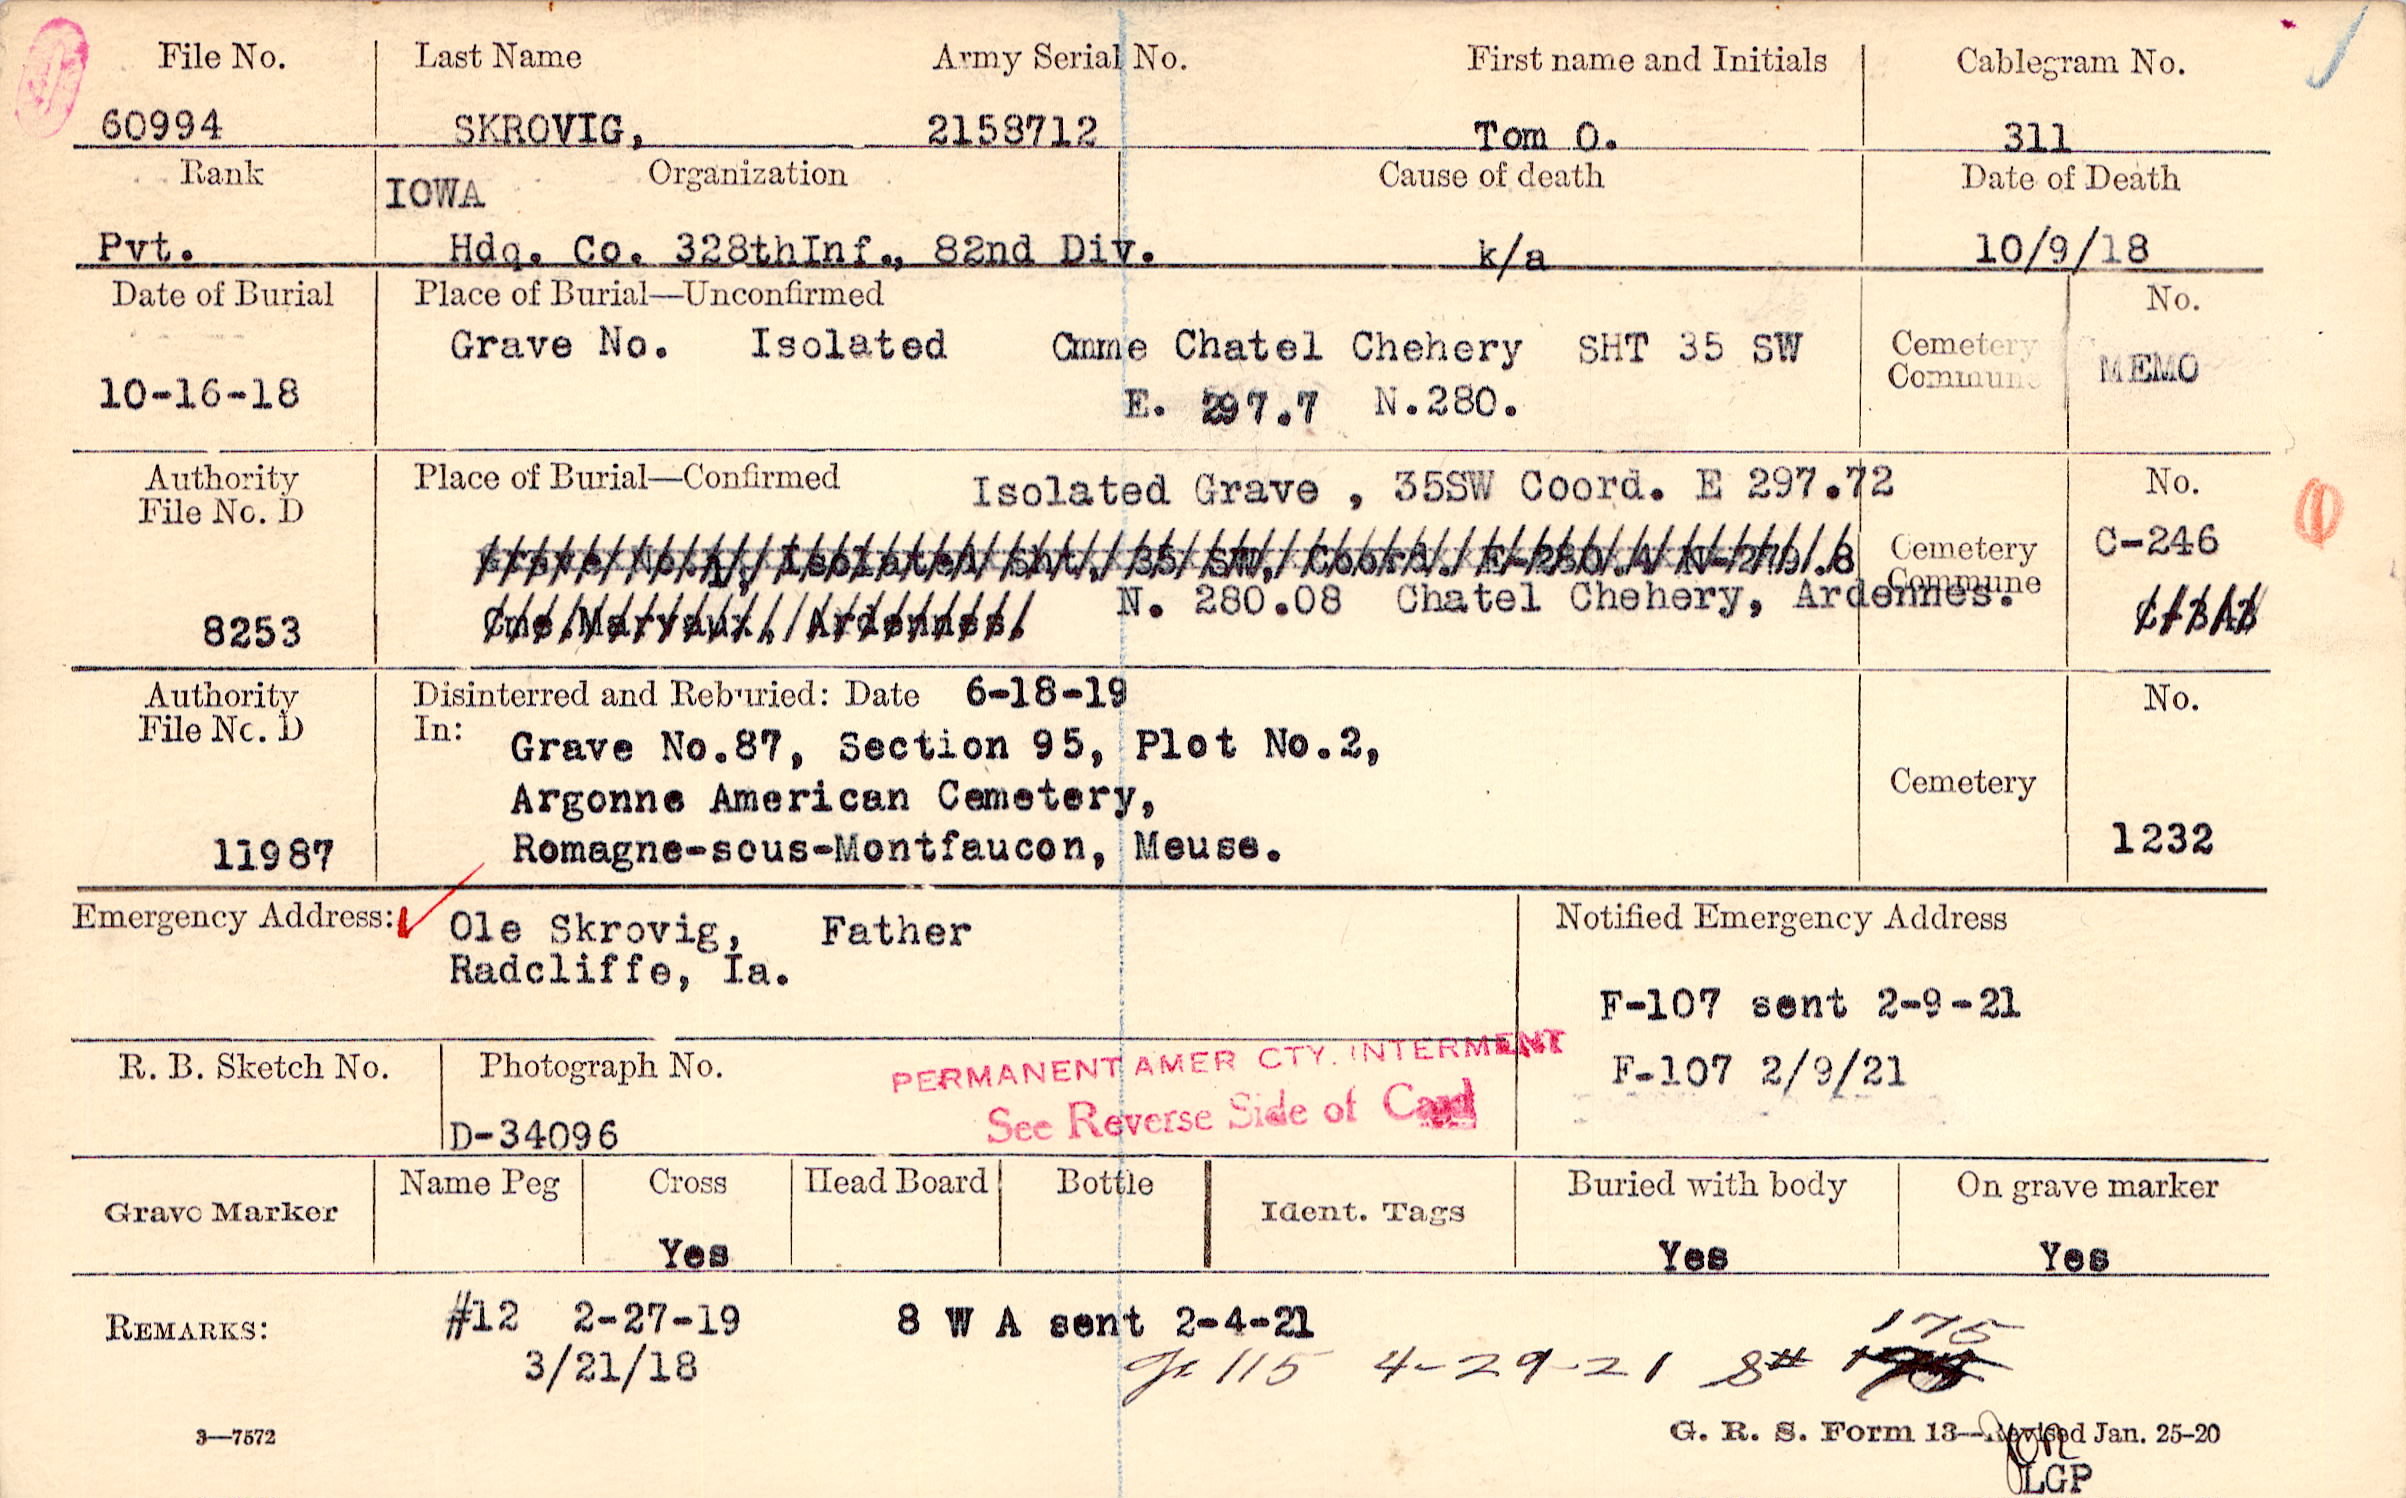 File No. Last Name Army Serial No. First name and Initials Cablegram No.
60994 SKROVIG, 2158712 Tom O. 311
Rank IOWA Organization Cause of death Date of Death
Pvt. Hdq. Co. 328thInf., 82nd Div. k/a 10/9/18
Date of Burial Place of Burial—Unconfirmed No.
Grave No. Isolated Cmme Chatel Chehery SHT 35 SW Cemetery
Commune MEMO
10-16-18 E. 297.7 N.280.
Authority Place of Burial—Confirmed Isolated Grave , 35SW Coord. E 297.72 No.
File No. D
Grave No. 1, Isolated Sht. 35 SW. Coord. E-280.4 N-279.8 Cemetery C-246
Commune
8253 Cme. Marvaux, Ardennes. N. 280.08 Chatel Chehery, Ardennes.
Authority Disinterred and Reburied: Date 6-18-19 No.
File No. D In: Grave No.87, Section 95, Plot No.2,
Argonne American Cemetery, Cemetery
11987 Romagne-sous-Montfaucon, Meuse. 1232
Emergency Address: Ole Skrovig, Father Notified Emergency Address
Radcliffe, Ia.
F-107 sent 2-9-21
R. B. Sketch No. Photograph No. PERMANENT AMER CTY. INTERMENT F-107 2/9/21
D-34096 See Reverse Side of Card
Grave Marker Name Peg Cross Head Board Bottle Ident. Tags Buried with body On grave marker
Yes Yes Yes
REMARKS: #12 2-27-19 8 W A sent 2-4-21 175
3/21/18 115 4-29-21 S#
3—7572 G. R. S. Form 13—Revised Jan. 25-20
LGP